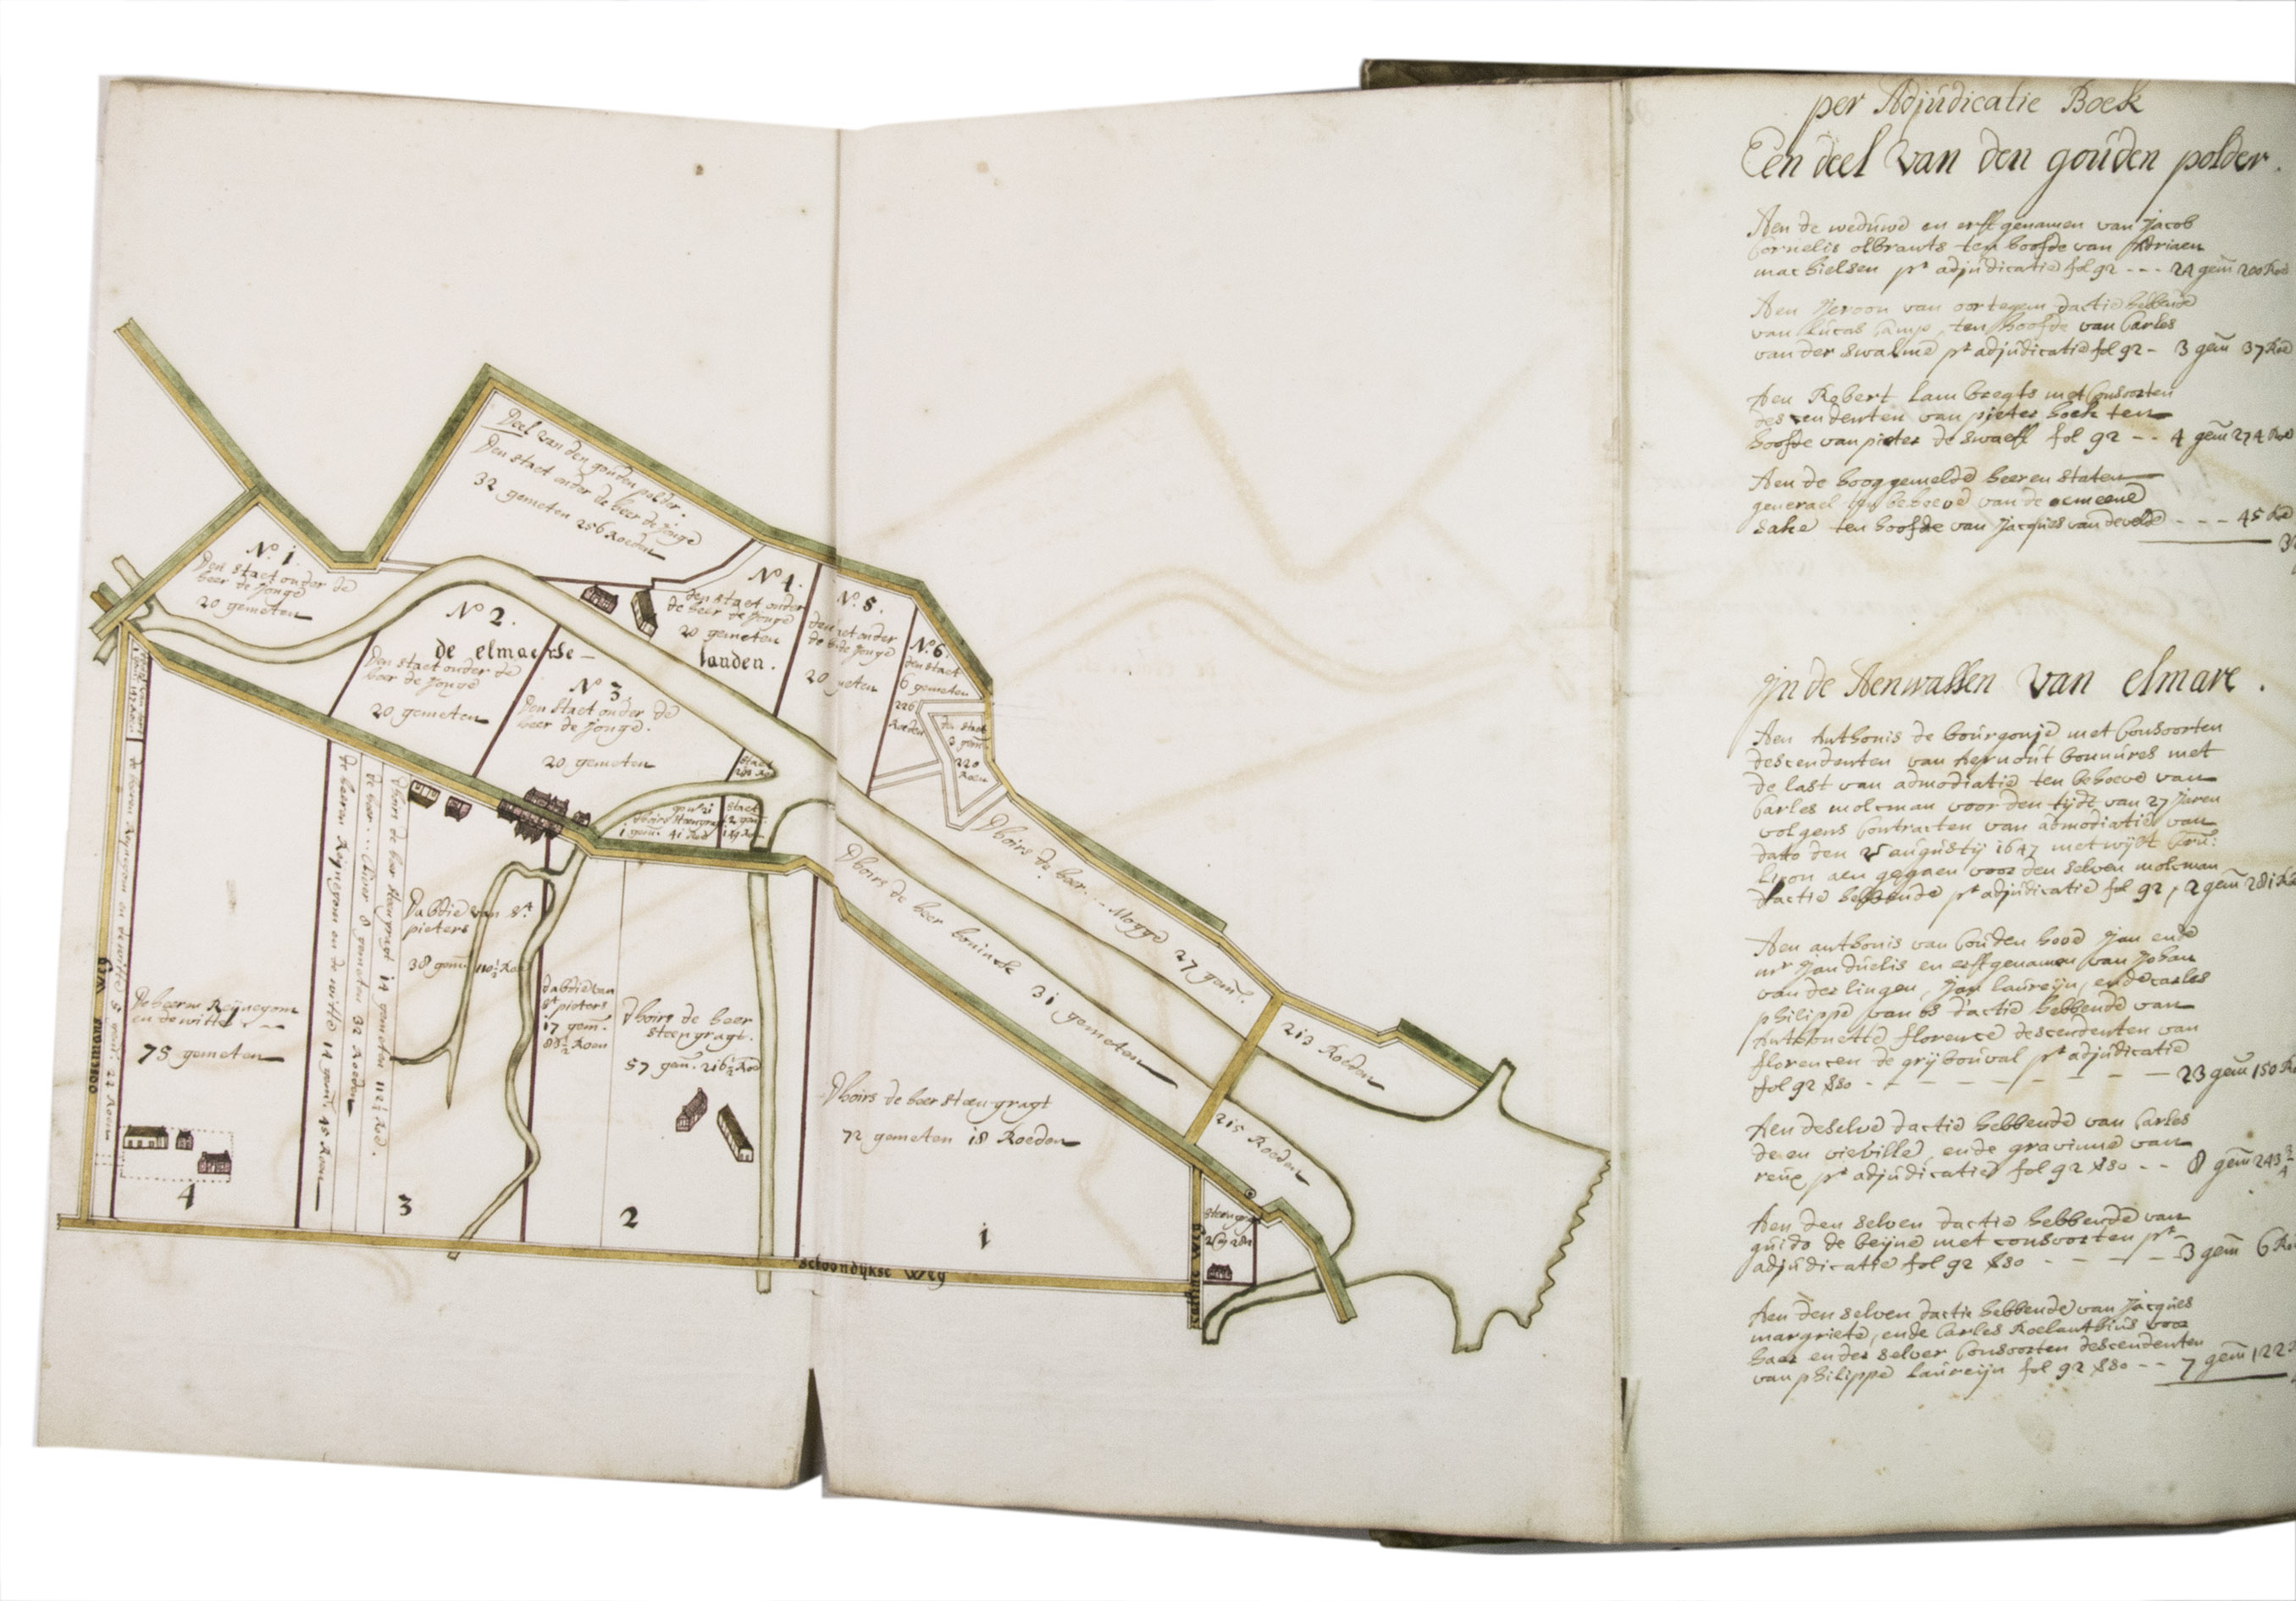 Deel van den gouden polder.
Den staet onder de heer de Jonge
32 gemeten 256 Roeden
N.º 1.
Den staet onder de
heer de Jonge
20 gemeten
N.º 2.
de elmaerse-
landen.
Den staet onder de
heer de Jonge
20 gemeten
N.º 3.
Den staet onder de
heer de Jonge.
20 gemeten
N.º 4.
den staet onder
de heer de Jonge
20 gemeten
N.º 5.
20
N.º 6.
den staet
6 gemeten
226
Roeden
den staet
3 gem.
220
Roen
staet
staet
2 gem.
1 gem. 41 Roe
Dhoirs de heer... Mogge 27 gem.
Dhoirs de heer bouinck 31 gemeten
213 Roeden
215 Roeden
oostmans weg
De heeren Reijnegom
en de witte
75 gemeten
4
de heeren Reijnegom en de witte 14 gemt. 45 Roen
de heer... 8 gemeten 32 Roeden
Dhoirs de heer steengragt 14 gemeten 112½ Rod.
Dabdie van St.
pieters
38 gem. 110½ Roe
3
dabdie van
St. pieters
17 gem.
88½ Roen
Dhoirs de heer
steengragt.
57 gem. 216½ Rod
2
Dhoirs de heer steengragt
72 gemeten 18 Roeden
1
schoondijkse weg
weg
per Adjudicatie Boek
Een deel Van den gouden polder.
Aen de weduwe en erffgenamen van Jacob
Cornelis olbrants ten hoofde van Adriaen
machielsen pr adjudicatie fol 92 --- 24 gem 200 Roe
Aen Jeroon van oortegem dactie hebbende
van Lucas Camp, ten hoofde van Carles
van der swalme pr adjudicatie fol 92 - 3 gem 37 Roe
Aen Robert Lambregts met Consoorten
descendenten van pieter hoek ten
hoofde van pieter de swaeff fol 92 -- 4 gem 274 Roe
Aen de hooggemelde heeren staten
generael ten behoeve van de gemeene
sake ten hoofde van Jacques van de velde --- 45 Roe
Jn de Aenwassen Van elmare.
Aen Anthonis de bourgonje met Consoorten
descendenten van Aernout bonnires met
de last van admodiatie ten behoeve van
Carles molcman voor den tijdt van 27 Jaren
volgens Contracten van admodiatie van
dato den 25 augustij 1647 met wijst
aen gegaen voor den selven molcman
dactie hebbende pr adjudicatie fol 92, 2 gem 281 Ro
Aen anthonis van Couden hove Jan ende
mr Jan duelis en erffgenamen van Johan
van der lingen, Jan laureijn, ende carles
philippe van os d'actie hebbende van
Anthonette florence descendenten van
florencen de grijbouval pr adjudicatie
fol 92 &80 - - - - - - - 23 gem 150 Ro
Aen deselve dactie hebbende van Carles
de en vieville, ende gravinne van
reux pr adjudicatie fol 92 &80 -- 8 gem 243¾
Aen den selven dactie hebbende van
guido de beijne met consoorten pr
adjudicatie fol 92 &80 - - - - 3 gem 6 Ro
Aen den selven dactie hebbende van Jacques
margriete, ende Carles Roelanthius voor
haer ende selver Consoorten descendenten
van philippe laureijn fol 92 &80 -- 7 gem 122